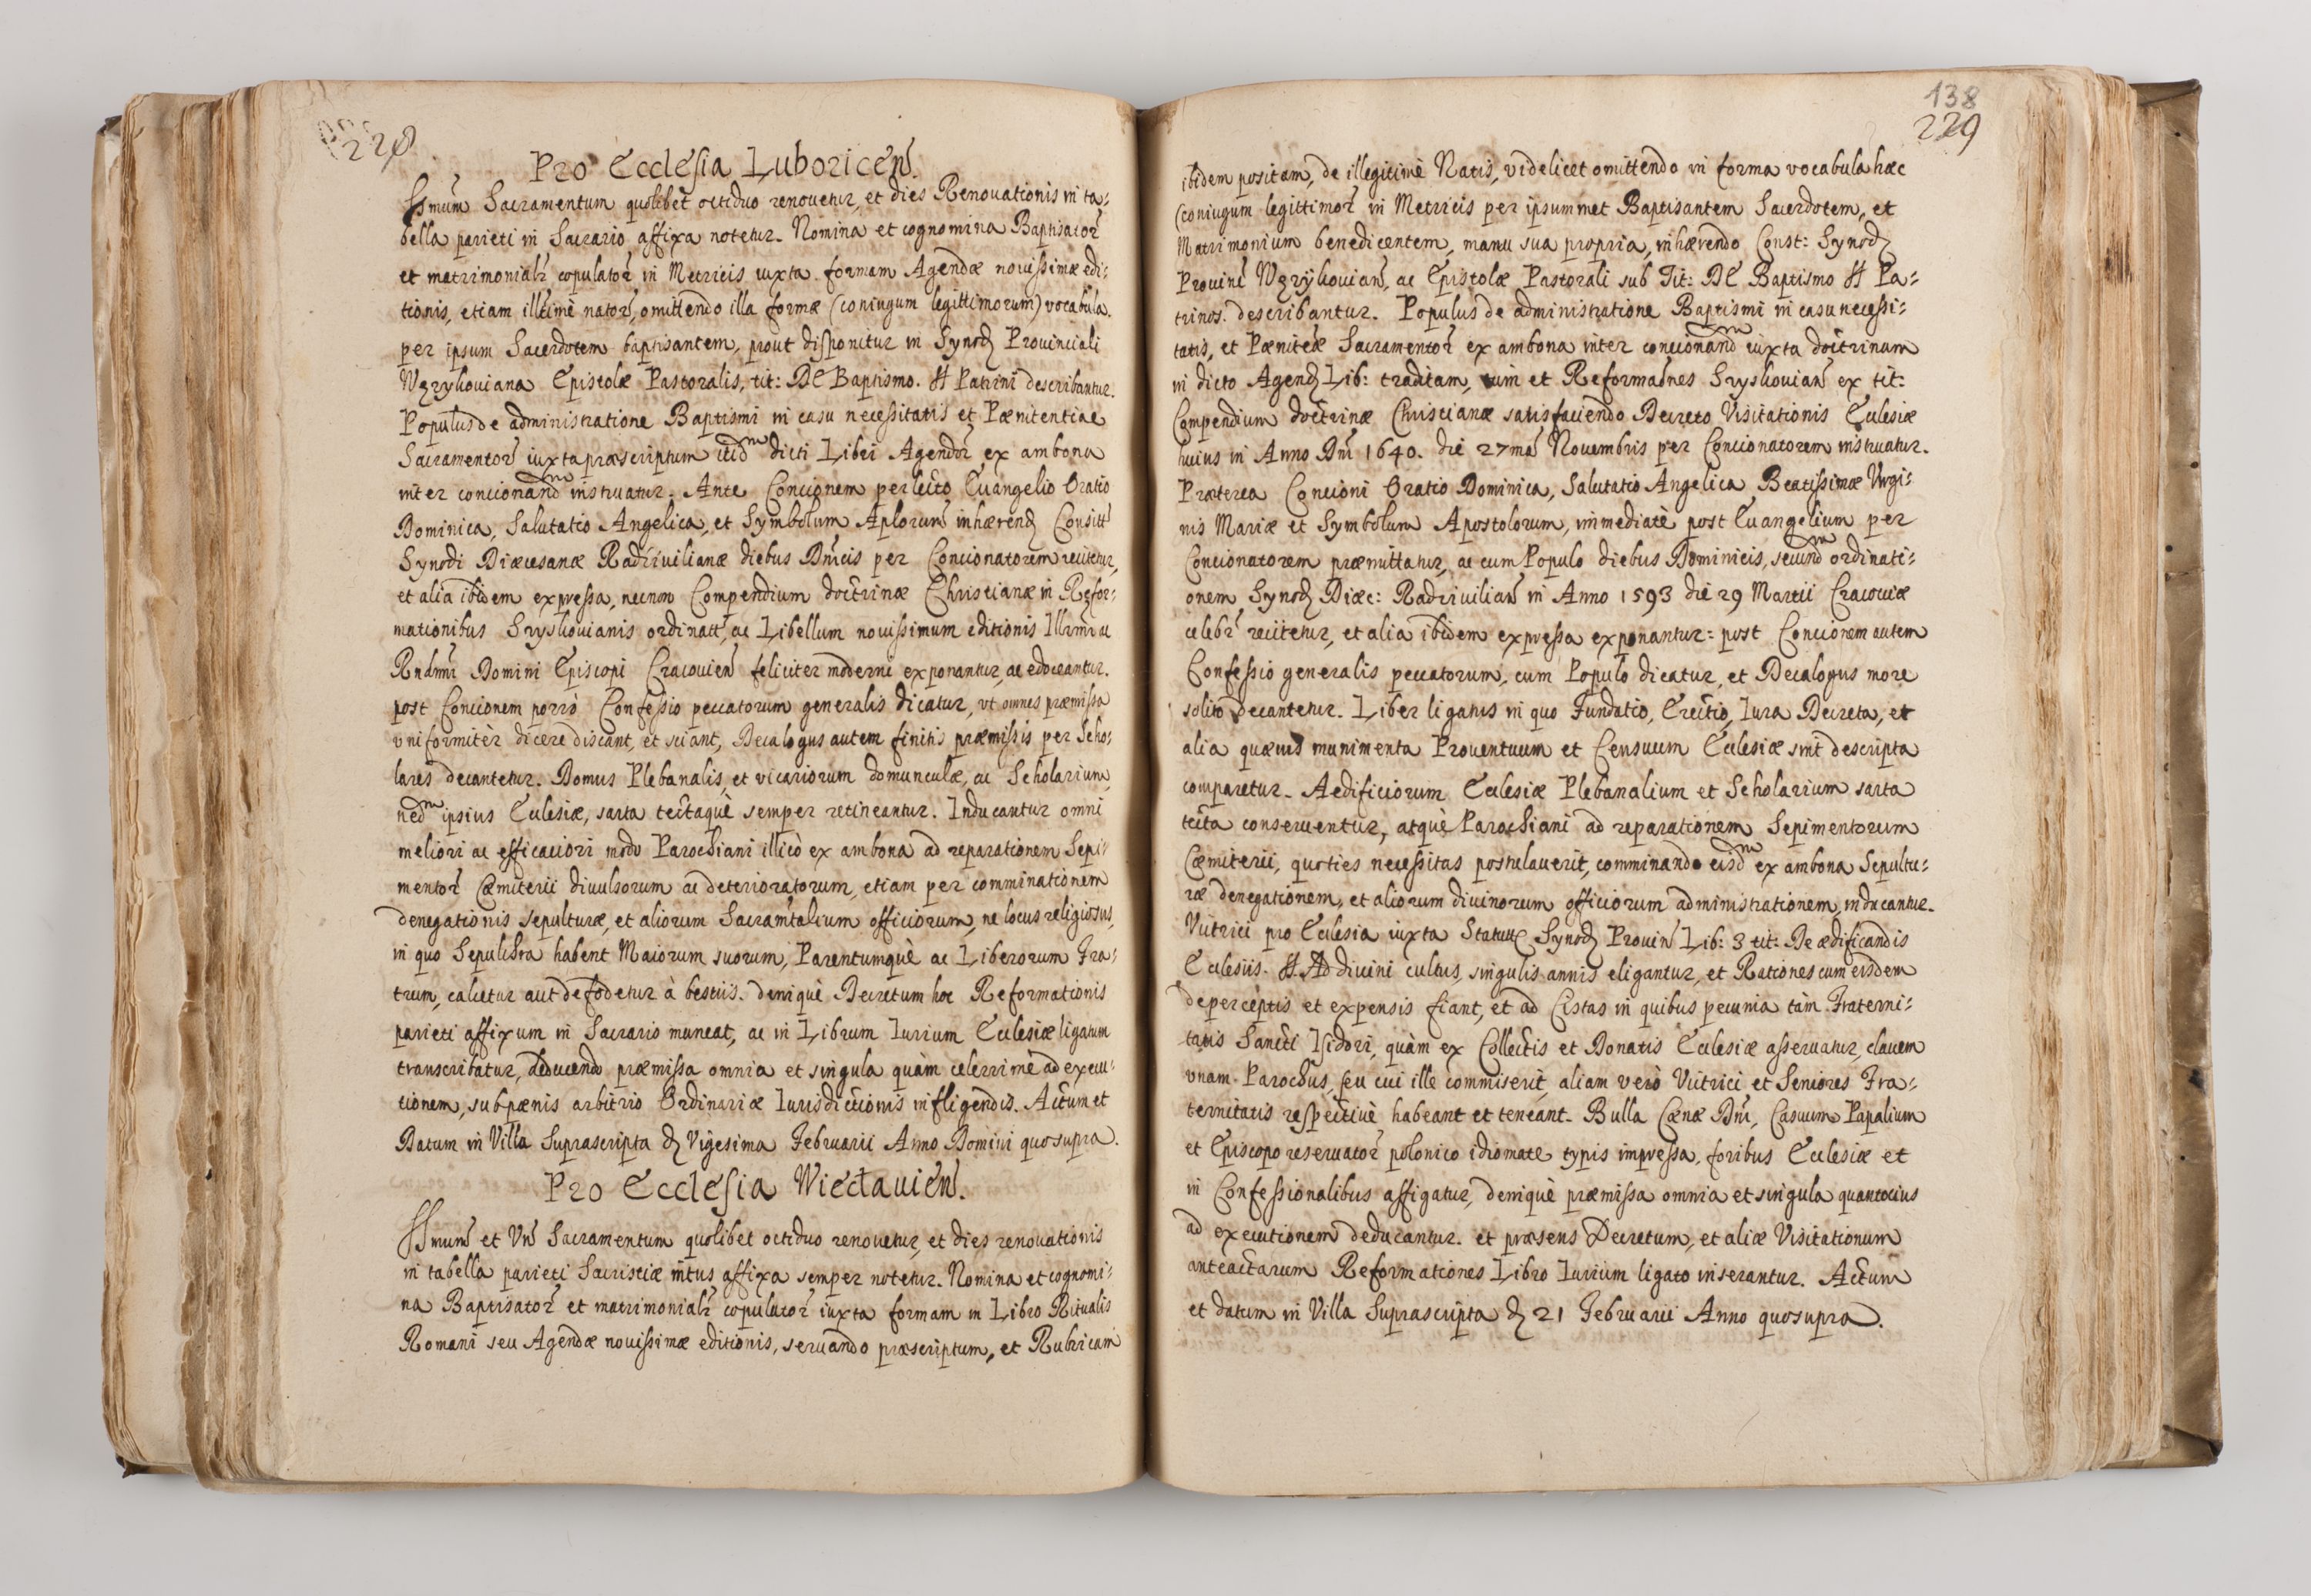 228
Pro Ecclesia Luboricen.
SSmum Sacramentum quolibet octiduo renouetur, et dies Renouationis in ta:
bella parieti in Sacrario affixa notetur. Nomina et cognomina Baptisator
et matrimonialr copulator in Metricis iuxta formam Agendæ nouissimæ edi:
tionis, etiam illtimè nator, omittendo illa formæ (coniugum legittimorum) vocabula.
per ipsum Sacerdotem baptisantem, prout disponitur in Synod Prouinciali
Wężykouiana Epistolæ Pastoralis, tit: DE Baptismo. § Patrini describantur.
Populus de administratione Baptismi in casu necessitatis et Pænitentiae
Sacramentor iuxta præscriptum eiusdm dicti Libri Agendor ex ambona
inter concionandm instruatur. Ante Concionem perlecto Euangelio Oratio
Dominica, Salutatio Angelica, et Symbolum Aplorum inhærend Constitt
Synodi Diæcesanæ Radziuilianæ diebus Dnicis per Concionatorem recitetur,
et alia ibidem expressa, necnon Compendium doctrinæ Christianæ in Refor:
mationibus Szyskouianis ordinatt, ac Libellum nouissimum editionis Illrmi ac
Rndmi Domini Episcopi Cracouien feliciter moderni exponantur, ac edoceantur.
post Concionem porrò Confessio peccatorum generalis dicatur, vt omnes præmissa
vniformitèr dicere discant, et sciant, Decalogus autem finitis præmissis per Scho:
lares decantetur. Domus Plebanalis, et vicariorum domunculæ, ac Scholarium,
nedm ipsius Ecclesiæ, sarta tectaquè semper retineantur. Inducantur omni
meliori ac efficaciori modo Parochiani illicò ex ambona ad reparationem Sepi:
mentor Cæmiterii diuulsorum ac deterioratorum, etiam per comminationem
denegationis sepulturæ, et aliorum Sacramtalium officiorum, ne locus religiosus,
in quo Sepulchra habent Maiorum suorum, Parentumquè ac Liberorum Fra:
trum, calcetur aut defodetur à bestiis. deniquè Decretum hoc Reformationis
parieti affixum in Sacrario maneat, ac in Librum Iurium Ecclesiæ ligatum
transcribatur, deducendo præmissa omnia et singula quàm celerrimè ad execu:
tionem, sub pænis arbitrio Ordinariæ Iurisdictionis infligendis. Actum et
Datum in Villa Suprascripta d Vigesima Februarii Anno Domini quo supra.
Pro Ecclesia Wiectauien.
SSmum et Vn Sacramentum quolibet octiduo renouetur, et dies renouationis
in tabella parieti Sacristiæ intus affixa semper notetur. Nomina et cognomi:
na Baptisator et matrimonialr copulator iuxta formam in Libro Ritualis
Romani seu Agendæ nouissimæ editionis, seruando præscriptum, et Rubricam
138
229
ibidem positam, de illegitimè Natis, videlicet omittendo in forma vocabula hæc
(coniugum legittimor in Metricis per ipsummet Baptisantem Sacerdotem, et
Matrimonium benedicentem, manu sua propria, inhærendo Const: Synod
Prouin Wężykouian, ac Epistolæ Pastorali sub Tit: DE Baptismo § Pa:
trinos. describantur. Populus de administratione Baptismi in casu necessi:
tatis, et Pæniteæ Sacramentor ex ambona inter concionandm iuxta doctrinam
in dicto Agend Lib: traditam, tum et Reformaõnes Szyskouian ex tit:
Compendium doctrinæ Christianæ satisfaciendo Decreto Visitationis Ecclesiæ
huius in Anno Dni 1640. die 27ma Nouembris per Concionatorem instruatur.
Præterea Concioni Oratio Dominica, Salutatio Angelica Beatissimæ Virgi:
nis Mariæ et Symbolum Apostolorum, immediatè post Euangelium per
Concionatorem præmittatur, ac cum Populo diebus Dominicis, secundm ordinati:
onem Synod Diæc: Radziuilian in Anno 1593 die 29 Martii Cracouiæ
celebr recitetur, et alia ibidem expressa exponantur: post Concionem autem
Confessio generalis peccatorum, cum Populo dicatur, et Decalogus more
solito decantetur. Liber ligatus in quo Fundatio, Erectio, Iura Decreta, et
alia quæuis munimenta Prouentuum et Censuum Ecclesiæ sint descripta
comparetur. Aedificiorum Ecclesiæ Plebanalium et Scholarium sarta
tecta conseruentur, atquè Parochiani ad reparationem Sepimentorum
Cæmiterii, quoties necessitas postulauerit, comminando eisdm ex ambona Sepultu:
ræ denegationem, et aliorum diuinorum officiorum administrationem, inducantur.
Vitrici pro Ecclesia iuxta Statutt Synod Prouin Lib: 3 tit: De ædificandis
Ecclesiis. § Ad diuini cultus, singulis annis eligantur, et Rationes cum eisdem
de perceptis et expensis fiant, et ad Cistas in quibus pecunia tàm Fraterni:
tatis Sancti Isidori, quàm ex Collectis et Donatis Ecclesiæ asseruatur, clauem
vnam Parochus, seu cui ille commiserit, aliam verò Vitrici et Seniores Fra:
ternitatis respectiuè habeant et teneant. Bulla Cænæ Dni, Casuum Papalium
et Episcopo reseruator polonico idiomate typis impressa, foribus Ecclesiæ et
in Confessionalibus affigatur, deniquè præmissa omnia et singula quantocius
ad executionem deducantur. et præsens Decretum, et aliæ Visitationum
anteactarum Reformationes Libro Iurium ligato inserantur. Actum
et datum in Villa Suprascripta d 21 Februarii Anno quo supra.